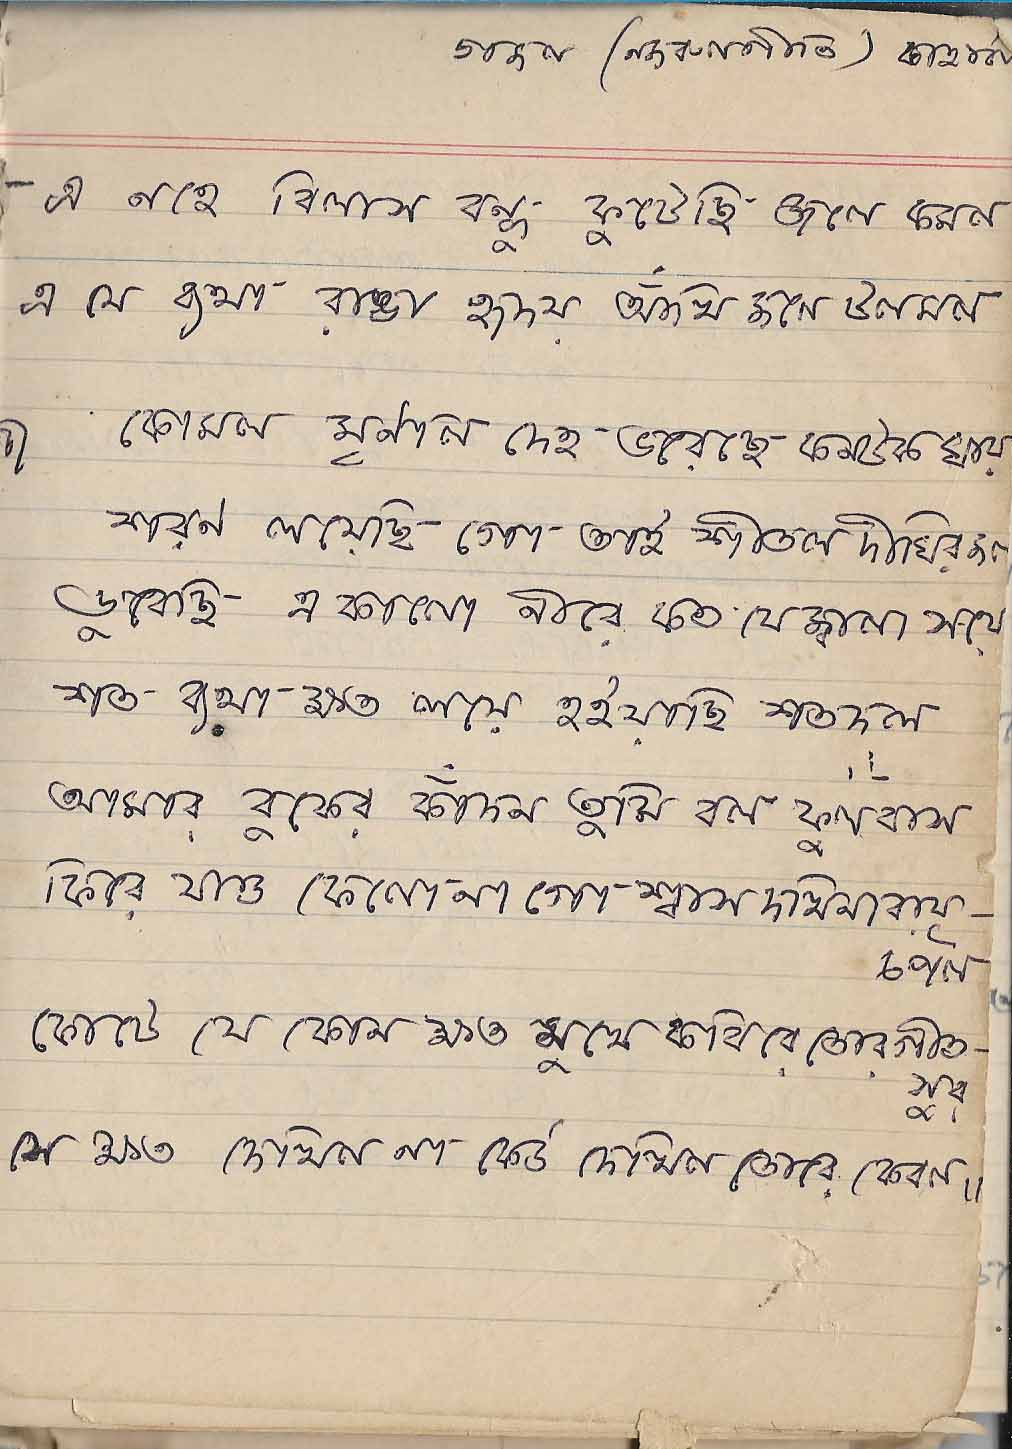 গজল (নজরুলগীতি) কাহার্বা
এ নহে বিলাস বন্ধু ফুটেছি জলে কমল
এ যে ব্যথা রাঙা হৃদয় আঁখি জলে টলমল
কোমল মৃণাল দেহ ভরেছে কন্টক ঘায়
শরণ লয়েছি গো তাই শীতল দীঘির জল
ডুবেছি এ কালো নীরে কত যে জ্বালা সয়ে
শত ব্যথা ক্ষত লয়ে হইয়াছি শতদল
আমার বুকের কাঁদন তুমি বল ফুল বাস
ফিরে যাও ফেলো না গো শ্বাস দখিনা বায়
চপল
ফোটে যে কোন ক্ষত মুখে কবিরে তোর গীত
সুর
সে ক্ষত দেখিল না কেউ দেখিল তোরে কেবল॥